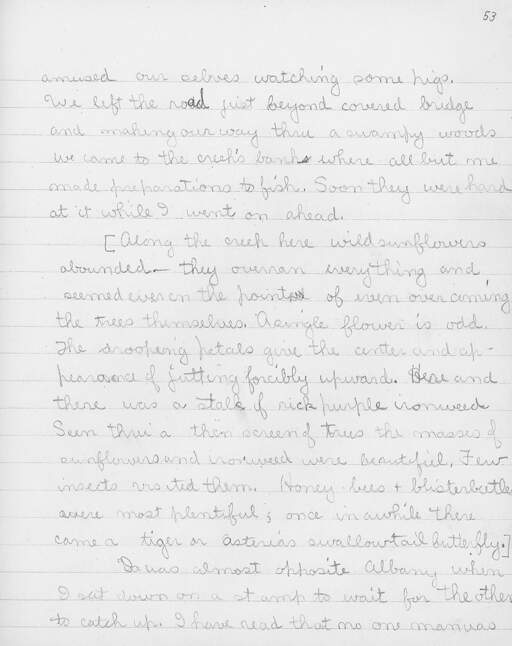 53
amused our selves watching some pigs.
We left the road just beyond covered bridge
and making our way thru a swampy woods
we came to the creek's bank where all but me
made preparations to fish. Soon they were hard
at it while I went on ahead.
[Along the creek here wild sunflowers
abounded — they overran everything and
seemed even on the point of even overcoming
the trees themselves. A single flower is odd.
The drooping petals give the center and ap-
pearance of jutting forcibly upward. Here and
there was a stalk of rich purple ironweed
Seen thru a thin screen of trees the masses of
sunflowers and ironweed were beautiful. Few
insects visited them. Honey bees + blisterbeetle
were most plentiful; once in awhile there
came a tiger or asterias swallowtail butterfly.]
I was almost opposite Albany when
I sat down on a stump to wait for the other
to catch up. I have read that no one man was